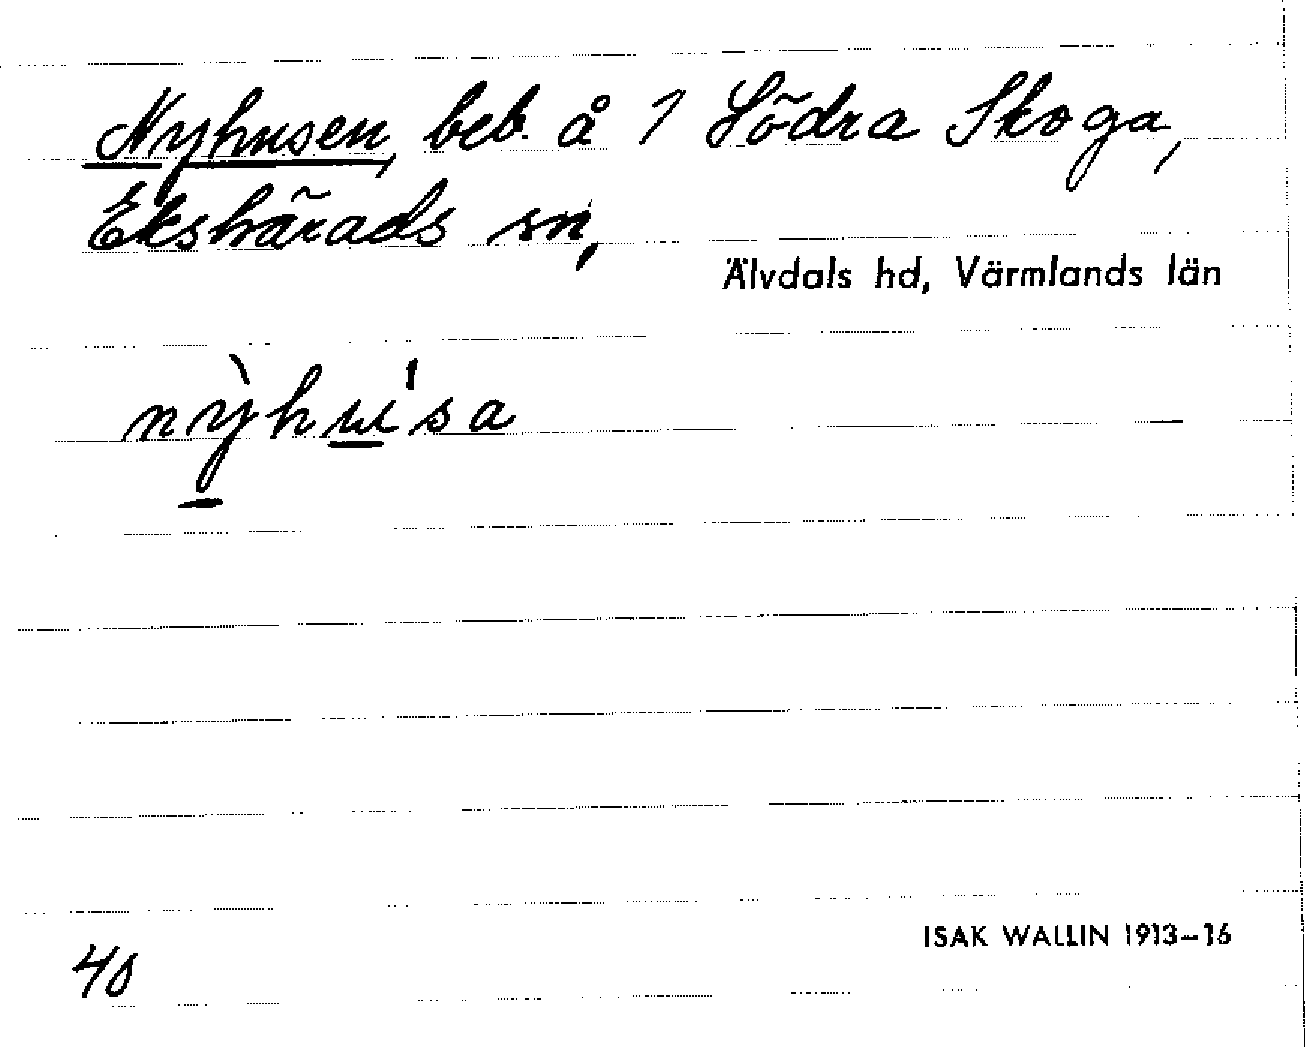 Nyhusen, beb. å 1 Södra Skoga,
Ekshärads sn,
Älvdals hd, Värmlands län
nỳhu'sa
40
ISAK WALLIN 1913–16